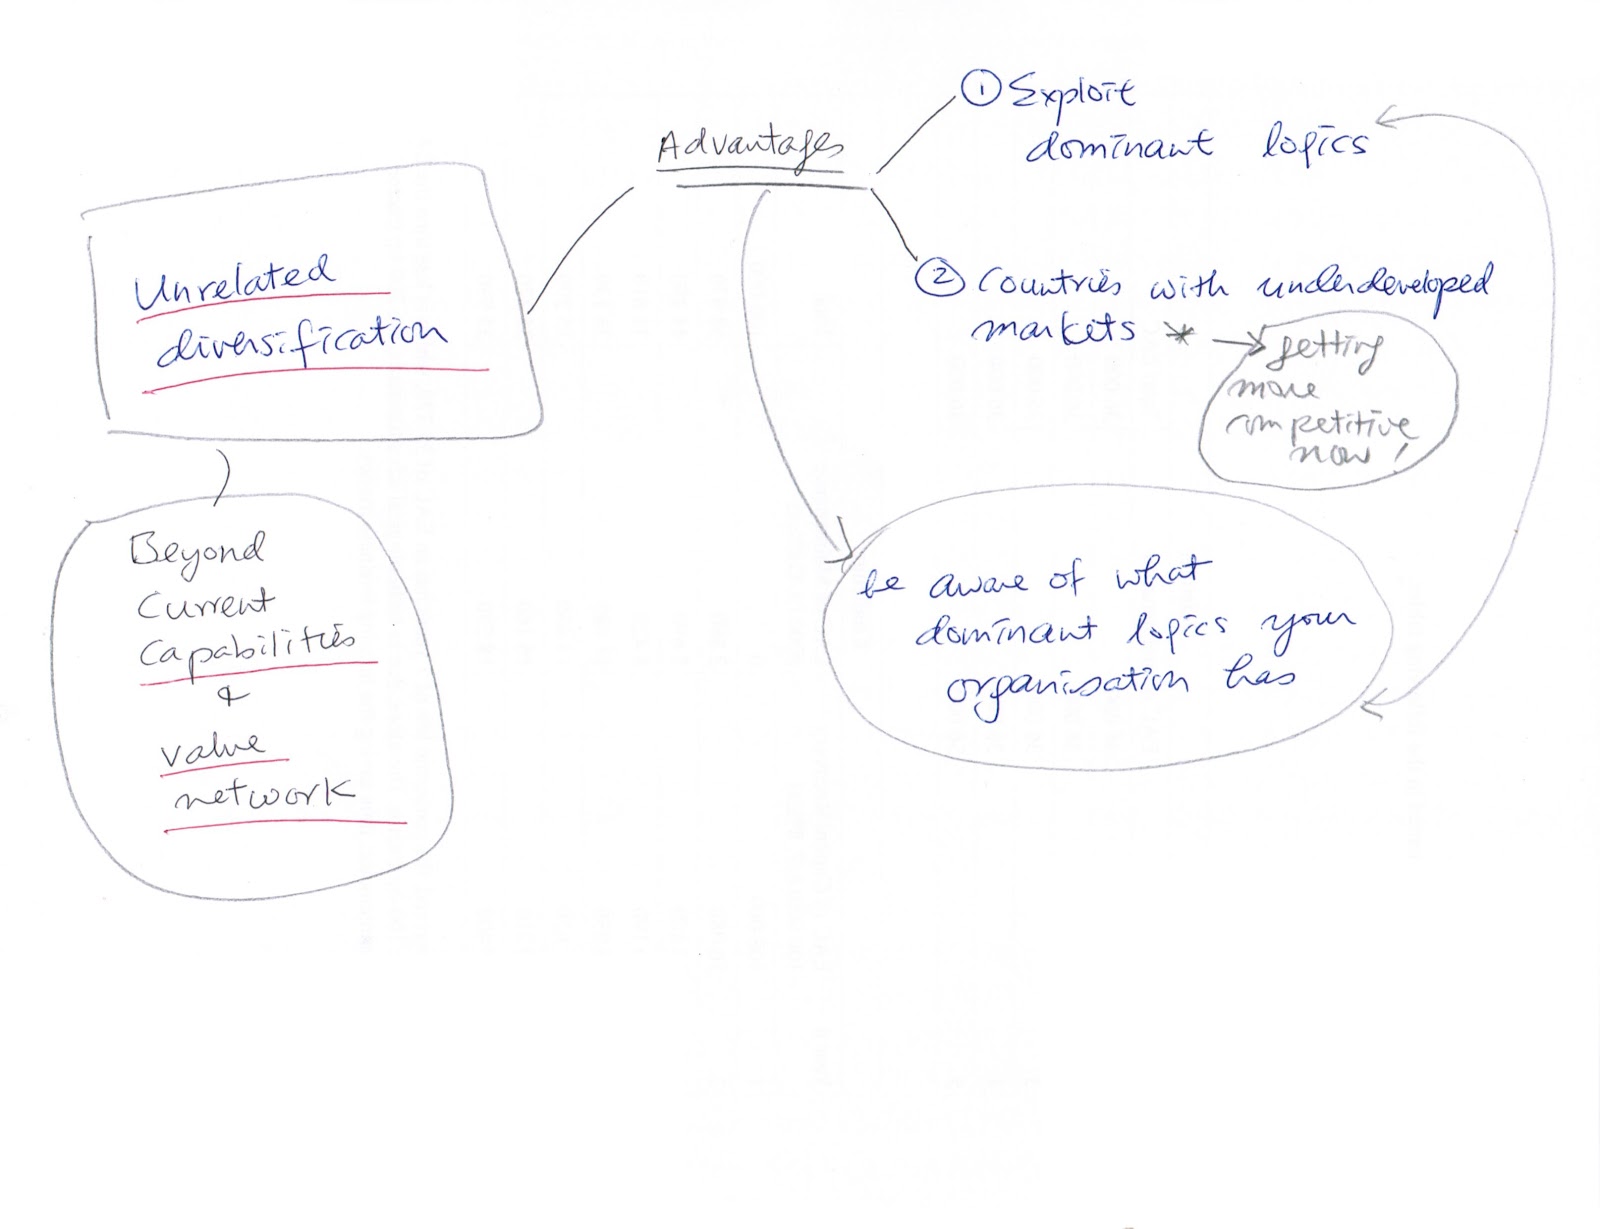 Unrelated
diversification
Beyond
Current
Capabilities
&
value
network
Advantages
① Exploit
dominant logics
② Countries with underdeveloped
markets * → getting
more
competitive
now!
be aware of what
dominant logics your
organisation has